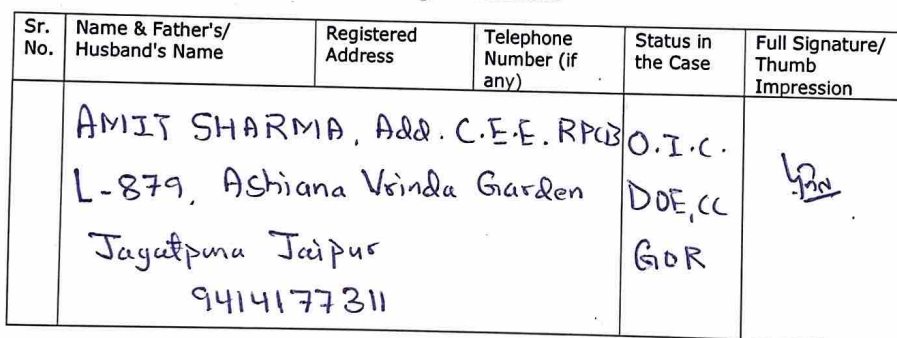 Sr. No. | Name & Father's/ Husband's Name | Registered Address | Telephone Number (if any) | Status in the Case | Full Signature/ Thumb Impression
AMIT SHARMA, Add. C.E.E. RPCB O.I.C.
L-879, Ashiana Vrinda Garden DOE, CC
Jagatpura Jaipur GOR
9414177311